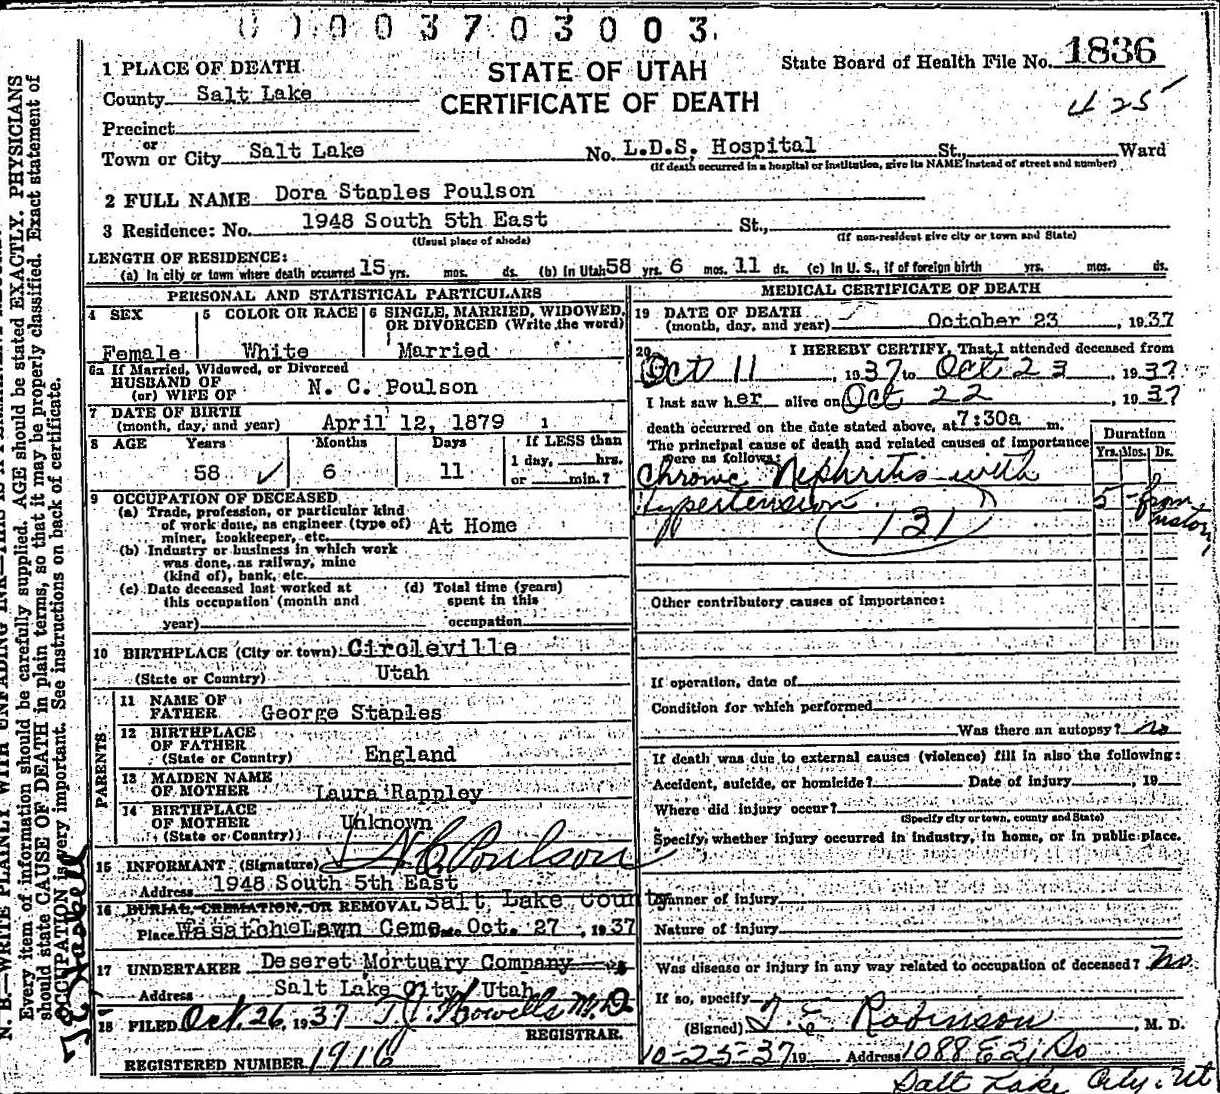 0003703003
1 PLACE OF DEATH
STATE OF UTAH
State Board of Health File No. 1836
County Salt Lake
CERTIFICATE OF DEATH
Precinct
or
Town or City Salt Lake No. L.D.S. Hospital St., Ward
(If death occurred in a hospital or institution, give its NAME instead of street and number)
2 FULL NAME Dora Staples Poulson
3 Residence: No. 1948 South 5th East St.,
(Usual place of abode) (If non-resident give city or town and State)
LENGTH OF RESIDENCE:
(a) In city or town where death occurred 15 yrs. mos. ds. (b) In Utah 58 yrs. 6 mos. 11 ds. (c) In U. S., if of foreign birth yrs. mos. ds.
PERSONAL AND STATISTICAL PARTICULARS
4 SEX
Female
5 COLOR OR RACE
White
6 SINGLE, MARRIED, WIDOWED,
OR DIVORCED (Write the word)
Married
6a If Married, Widowed, or Divorced
HUSBAND OF
(or) WIFE OF N. C. Poulson
7 DATE OF BIRTH
(month, day, and year) April 12, 1879
8 AGE Years Months Days If LESS than
1 day, hrs.
or min.?
58 6 11
9 OCCUPATION OF DECEASED
(a) Trade, profession, or particular kind
of work done, as engineer (type of)
miner, bookkeeper, etc. At Home
(b) Industry or business in which work
was done, as railway, mine
(kind of), bank, etc.
(c) Date deceased last worked at
this occupation (month and
year)
(d) Total time (years)
spent in this
occupation
10 BIRTHPLACE (City or town) Circleville
(State or Country) Utah
PARENTS
11 NAME OF
FATHER George Staples
12 BIRTHPLACE
OF FATHER
(State or Country) England
13 MAIDEN NAME
OF MOTHER Laura Rappley
14 BIRTHPLACE
OF MOTHER
(State or Country) Unknown
15 INFORMANT (Signature) N C Poulson
Address 1948 South 5th East
16 BURIAL, CREMATION, OR REMOVAL Salt Lake County
Place Wasatch Lawn Cem. Date Oct. 27, 1937
17 UNDERTAKER Deseret Mortuary Company
Address Salt Lake City, Utah
18 FILED Oct. 26, 1937 T. J. Howells M.D.
REGISTRAR.
REGISTERED NUMBER 1916
MEDICAL CERTIFICATE OF DEATH
19 DATE OF DEATH
(month, day, and year) October 23, 1937
20 I HEREBY CERTIFY, That I attended deceased from
Oct 11, 1937 to Oct 23 1937
I last saw her alive on Oct 22, 1937
death occurred on the date stated above, at 7:30a m.
The principal cause of death and related causes of importance
were as follows:
Duration
Yrs. Mos. Ds.
Chronic Nephritis with
Hypertension 5 - from
history
(131)
Other contributory causes of importance:
If operation, date of
Condition for which performed
Was there an autopsy? no
If death was due to external causes (violence) fill in also the following:
Accident, suicide, or homicide? Date of injury , 19
Where did injury occur?
(Specify city or town, county and State)
Specify whether injury occurred in industry, in home, or in public place.
Manner of injury
Nature of injury
Was disease or injury in any way related to occupation of deceased? No
If so, specify
(Signed) Robinson, M. D.
10-25-37 19 Address 1088 E 21 So
Salt Lake City, Ut
N. B.—WRITE PLAINLY WITH UNFADING INK—THIS IS A PERMANENT
Every item of information should be carefully supplied. AGE should be stated EXACTLY. PHYSICIANS
should state CAUSE OF DEATH in plain terms, so that it may be properly classified. Exact statement of
OCCUPATION is very important. See instructions on back of certificate.